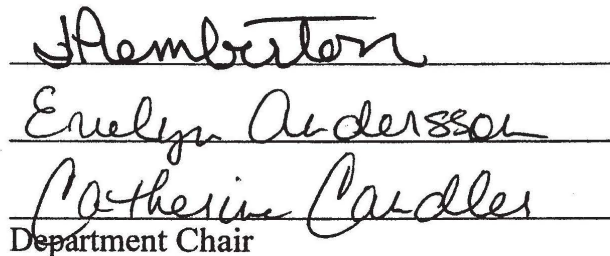 JPemberton
Evelyn Andersson
Catherine Candler
Department Chair